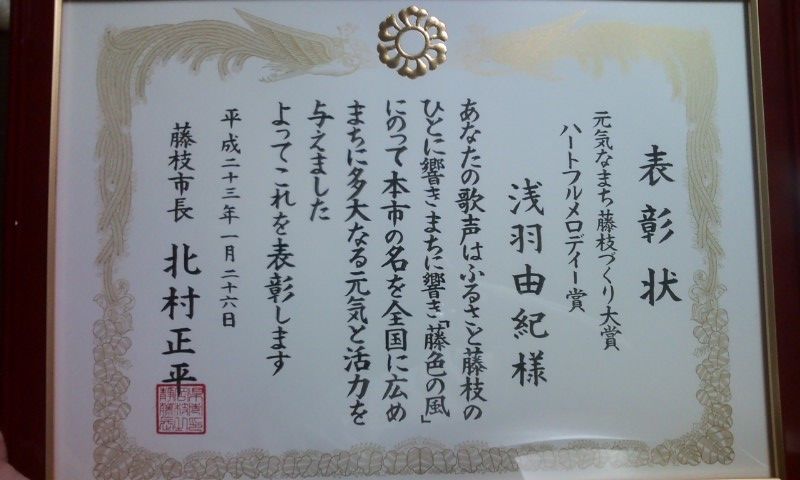 表彰状
元気なまち藤枝づくり大賞
ハートフルメロディー賞
浅羽由紀様
あなたの歌声はふるさと藤枝の
ひとに響きまちに響き「藤色の風」
にのって本市の名を全国に広め
まちに多大なる元気と活力を
与えました
よってこれを表彰します
平成二十三年一月二十六日
藤枝市長 北村正平